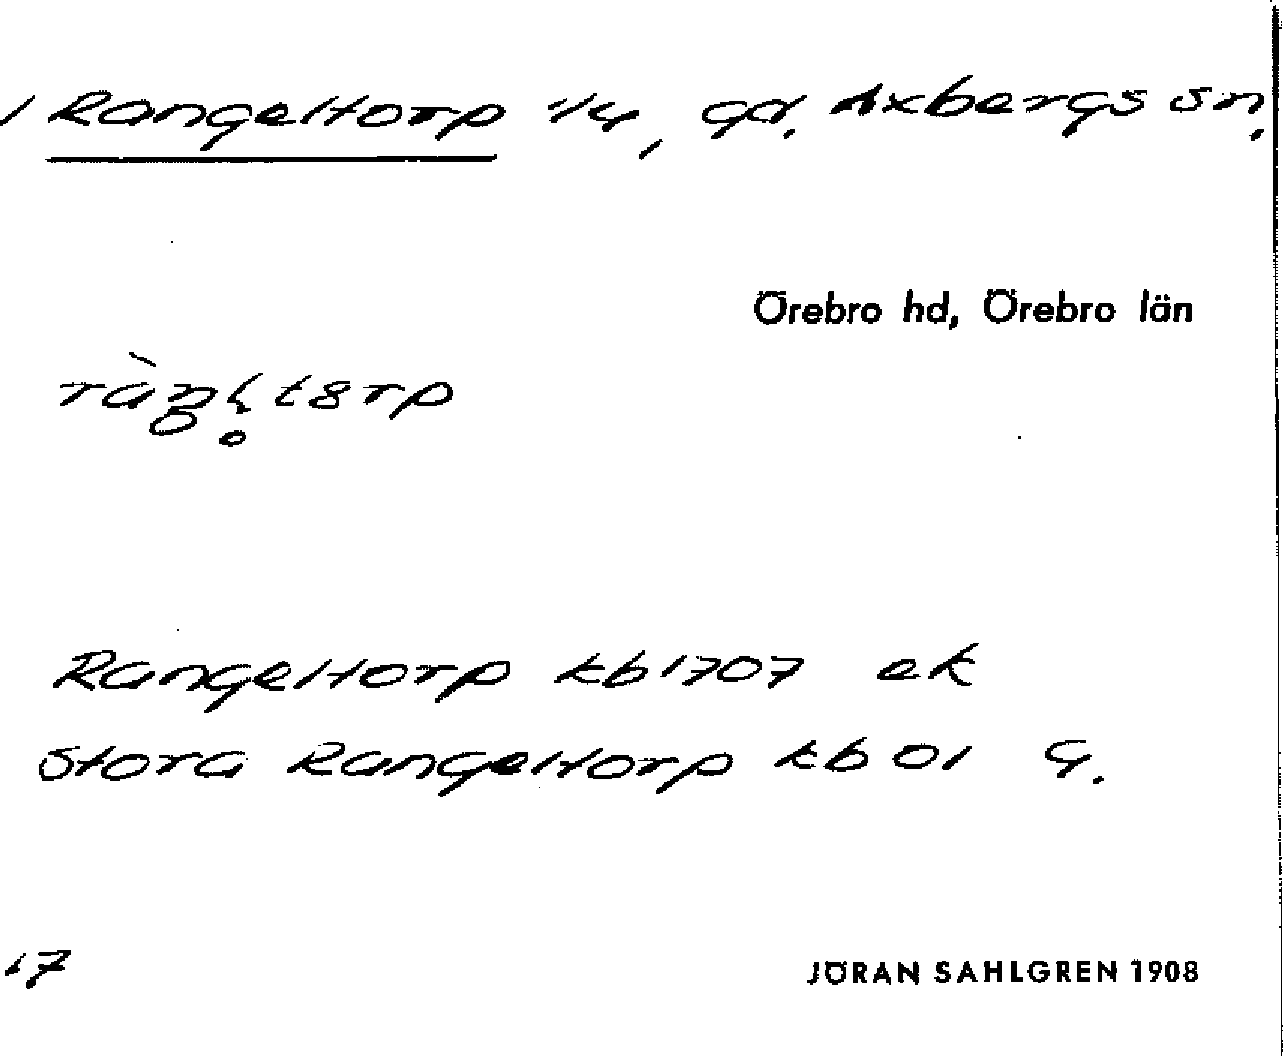 Rangeltorp 1/4, gd. Axbergs sn.
Örebro hd, Örebro län
Rangeltorp kb 1707 ek
Stora Rangeltorp kb 01 G.
17
JÖRAN SAHLGREN 1908